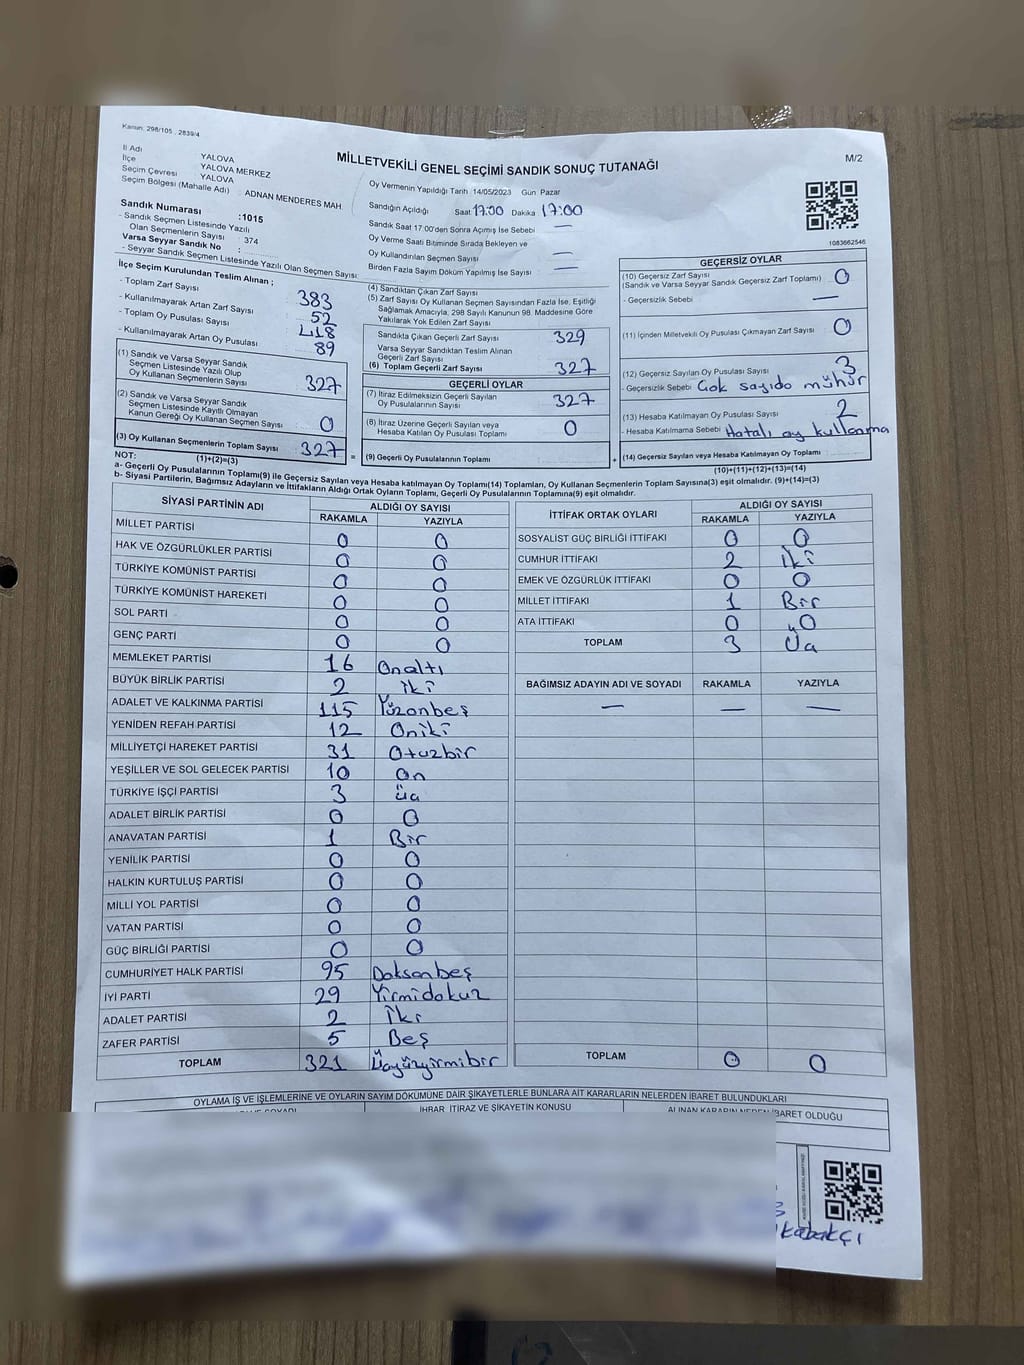 Kanun, 298/105 , 2839/4
MİLLETVEKİLİ GENEL SEÇİMİ SANDIK SONUÇ TUTANAĞI
M/2
İl Adı YALOVA
İlçe YALOVA MERKEZ
Seçim Çevresi YALOVA
Seçim Bölgesi (Mahalle Adı) : ADNAN MENDERES MAH.
Sandık Numarası :1015
- Sandık Seçmen Listesinde Yazılı
Olan Seçmenlerin Sayısı 374
Varsa Seyyar Sandık No :
- Seyyar Sandık Seçmen Listesinde Yazılı Olan Seçmen Sayısı:
Oy Vermenin Yapıldığı Tarih 14/05/2023 Gün Pazar
Sandığın Açıldığı Saat 17:00 Dakika 17:00
Sandık Saat 17.00'den Sonra Açılmış İse Sebebi —
Oy Verme Saati Bitiminde Sırada Bekleyen ve
Oy Kullandırılan Seçmen Sayısı —
Birden Fazla Sayım Döküm Yapılmış İse Sayısı —
1083662546
İlçe Seçim Kurulundan Teslim Alınan ;
- Toplam Zarf Sayısı 383
- Kullanılmayarak Artan Zarf Sayısı 52
- Toplam Oy Pusulası Sayısı 418
- Kullanılmayarak Artan Oy Pusulası 89
(1) Sandık ve Varsa Seyyar Sandık
Seçmen Listesinde Yazılı Olup
Oy Kullanan Seçmenlerin Sayısı 327
(2) Sandık ve Varsa Seyyar Sandık
Seçmen Listesinde Kayıtlı Olmayan
Kanun Gereği Oy Kullanan Seçmen Sayısı 0
(3) Oy Kullanan Seçmenlerin Toplam Sayısı 327 =
(1)+(2)=(3)
(4) Sandıktan Çıkan Zarf Sayısı
(5) Zarf Sayısı Oy Kullanan Seçmen Sayısından Fazla İse, Eşitliği
Sağlamak Amacıyla, 298 Sayılı Kanunun 98. Maddesine Göre
Yakılarak Yok Edilen Zarf Sayısı
Sandıkta Çıkan Geçerli Zarf Sayısı 329
Varsa Seyyar Sandıktan Teslim Alınan
Geçerli Zarf Sayısı
(6) Toplam Geçerli Zarf Sayısı 327
GEÇERLİ OYLAR
(7) İtiraz Edilmeksizin Geçerli Sayılan
Oy Pusulalarının Sayısı 327
(8) İtiraz Üzerine Geçerli Sayılan veya
Hesaba Katılan Oy Pusulası Toplamı 0
(9) Geçerli Oy Pusulalarının Toplamı +
GEÇERSİZ OYLAR
(10) Geçersiz Zarf Sayısı
(Sandık ve Varsa Seyyar Sandık Geçersiz Zarf Toplamı) 0
- Geçersizlik Sebebi —
(11) İçinden Milletvekili Oy Pusulası Çıkmayan Zarf Sayısı 0
(12) Geçersiz Sayılan Oy Pusulası Sayısı 3
- Geçersizlik Sebebi Çok sayıda mühür
(13) Hesaba Katılmayan Oy Pusulası Sayısı 2
- Hesaba Katılmama Sebebi Hatalı oy kullanma
(14) Geçersiz Sayılan veya Hesaba Katılmayan Oy Toplamı
(10)+(11)+(12)+(13)=(14)
NOT:
a- Geçerli Oy Pusulalarının Toplamı(9) ile Geçersiz Sayılan veya Hesaba katılmayan Oy Toplamı(14) Toplamları, Oy Kullanan Seçmenlerin Toplam Sayısına(3) eşit olmalıdır. (9)+(14)=(3)
b- Siyasi Partilerin, Bağımsız Adayların ve İttifakların Aldığı Ortak Oyların Toplamı, Geçerli Oy Pusulalarının Toplamına(9) eşit olmalıdır.
SİYASİ PARTİNİN ADI ALDIĞI OY SAYISI
RAKAMLA YAZIYLA
MİLLET PARTİSİ 0 0
HAK VE ÖZGÜRLÜKLER PARTİSİ 0 0
TÜRKİYE KOMÜNİST PARTİSİ 0 0
TÜRKİYE KOMÜNİST HAREKETİ 0 0
SOL PARTİ 0 0
GENÇ PARTİ 0 0
MEMLEKET PARTİSİ 16 Onaltı
BÜYÜK BİRLİK PARTİSİ 2 iki
ADALET VE KALKINMA PARTİSİ 115 Yüzonbeş
YENİDEN REFAH PARTİSİ 12 Oniki
MİLLİYETÇİ HAREKET PARTİSİ 31 Otuzbir
YEŞİLLER VE SOL GELECEK PARTİSİ 10 On
TÜRKİYE İŞÇİ PARTİSİ 3 üç
ADALET BİRLİK PARTİSİ 0 0
ANAVATAN PARTİSİ 1 Bir
YENİLİK PARTİSİ 0 0
HALKIN KURTULUŞ PARTİSİ 0 0
MİLLİ YOL PARTİSİ 0 0
VATAN PARTİSİ 0 0
GÜÇ BİRLİĞİ PARTİSİ 0 0
CUMHURİYET HALK PARTİSİ 95 Doksanbeş
İYİ PARTİ 29 Yirmidokuz
ADALET PARTİSİ 2 İki
ZAFER PARTİSİ 5 Beş
TOPLAM 321 Üçyüzyirmibir
İTTİFAK ORTAK OYLARI ALDIĞI OY SAYISI
RAKAMLA YAZIYLA
SOSYALİST GÜÇ BİRLİĞİ İTTİFAKI 0 0
CUMHUR İTTİFAKI 2 İki
EMEK VE ÖZGÜRLÜK İTTİFAKI 0 0
MİLLET İTTİFAKI 1 Bir
ATA İTTİFAKI 0 0
TOPLAM 3 Üç
BAĞIMSIZ ADAYIN ADI VE SOYADI RAKAMLA YAZIYLA
— — —
TOPLAM 0 0
OYLAMA İŞ VE İŞLEMLERİNE VE OYLARIN SAYIM DÖKÜMÜNE DAİR ŞİKAYETLERLE BUNLARA AİT KARARLARIN NELERDEN İBARET BULUNDUKLARI
İHBAR, İTİRAZ VE ŞİKAYETİN KONUSU
ALINAN KARARIN NEDEN İBARET OLDUĞU
kabakçı